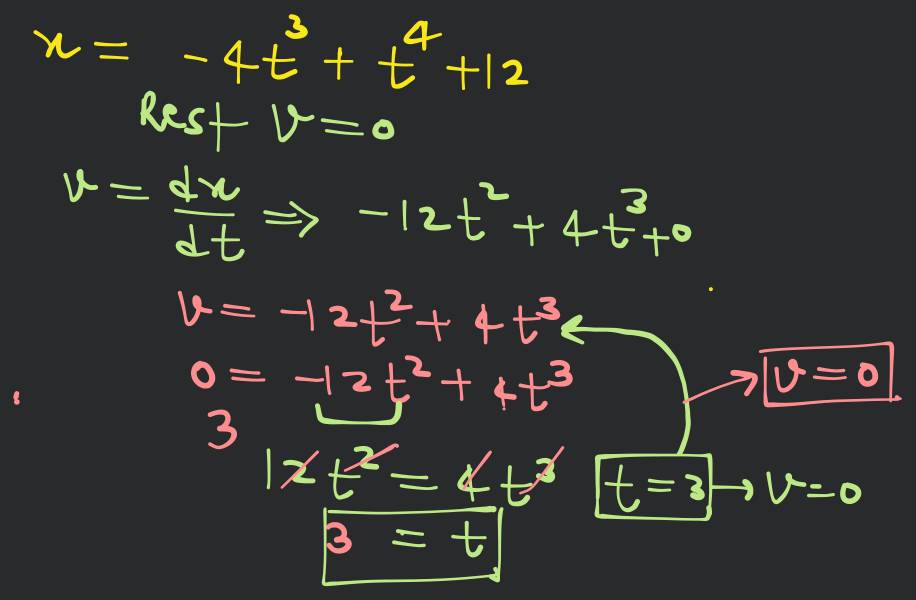 x = -4t³ + t⁴ + 12
Rest v = 0
v = dx/dt ⇒ -12t² + 4t³ + 0
v = -12t² + 4t³
0 = -12t² + 4t³
v = 0
3
12t² = 4t³
t = 3 → v = 0
3 = t